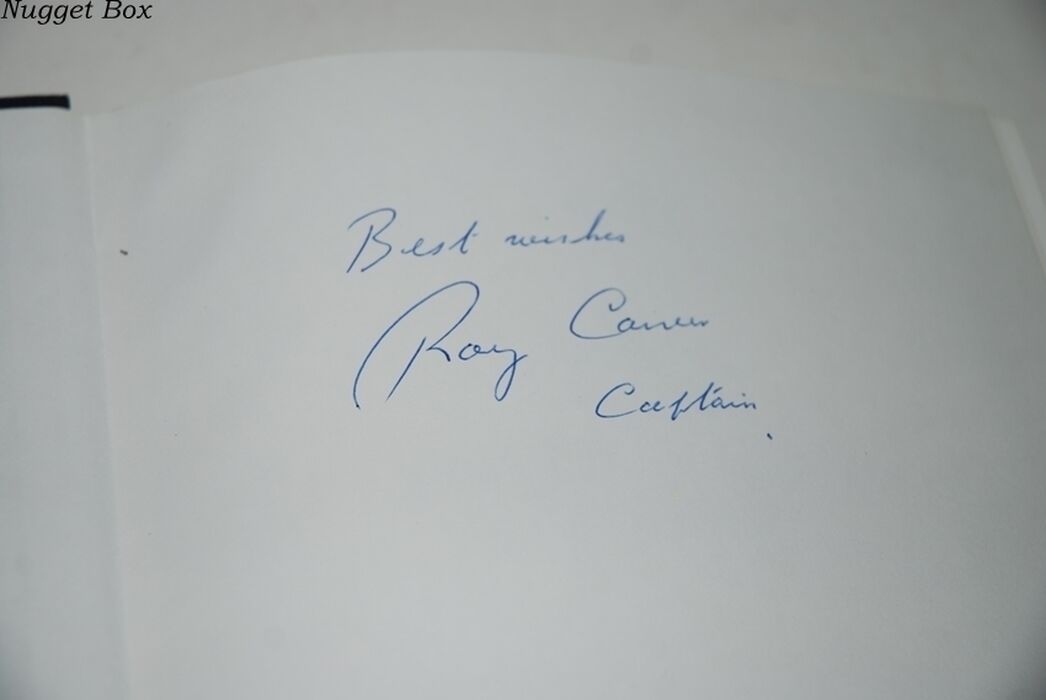 Nugget Box
Best wishes
Roy
Captain.